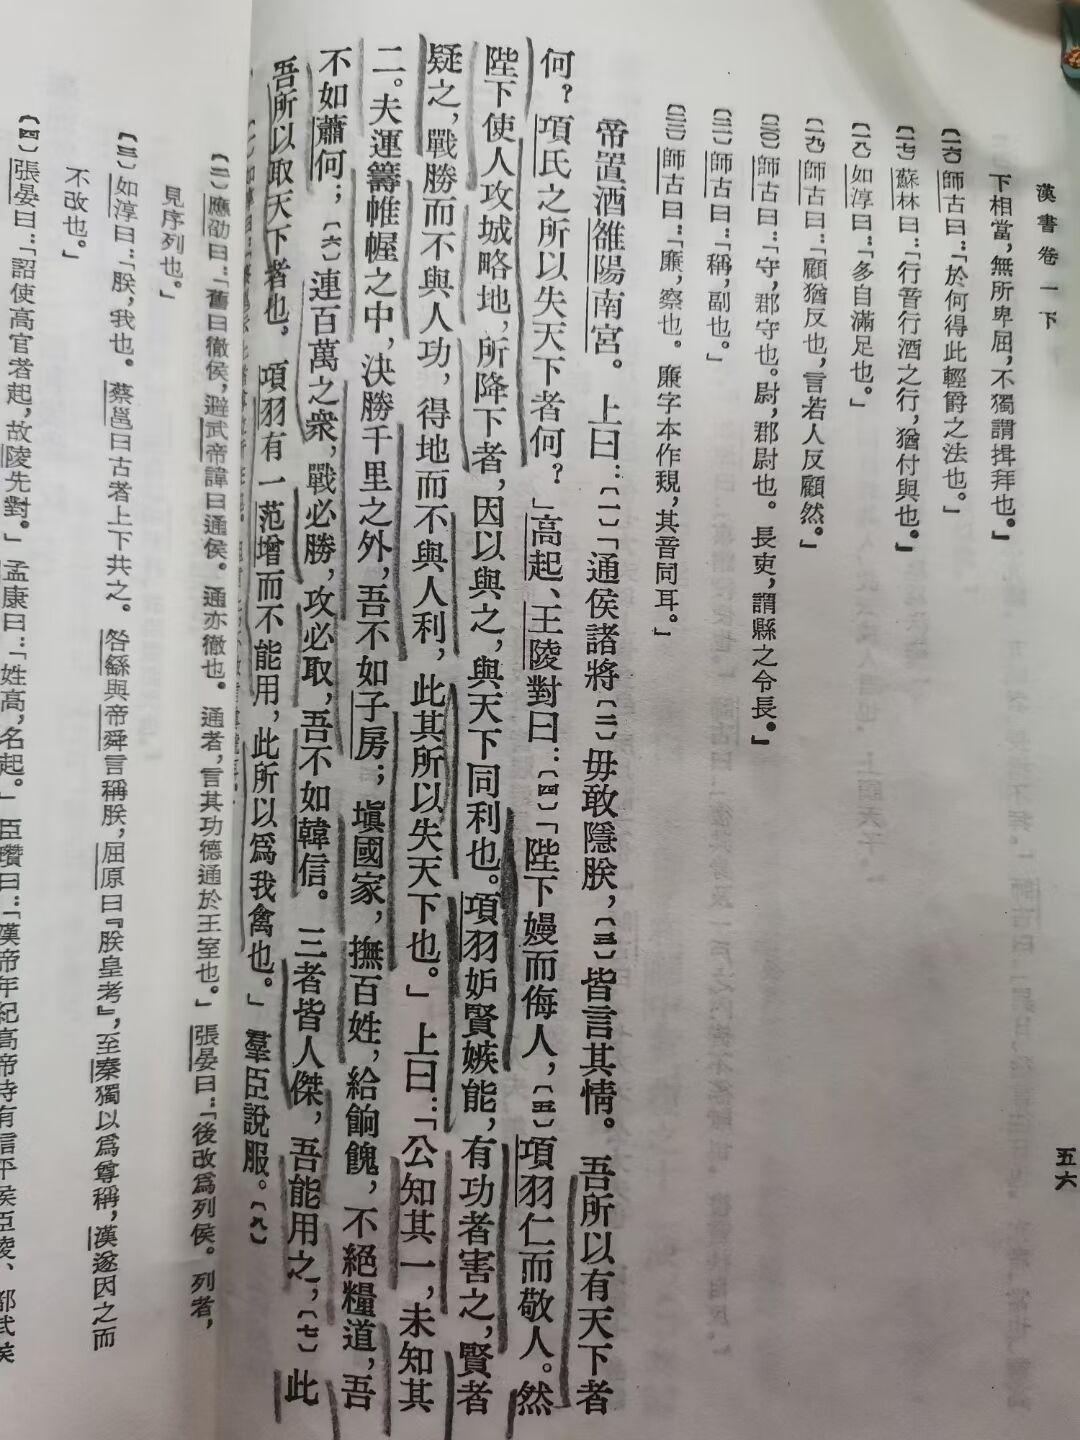 漢書卷一下
五六
下相當，無所卑屈，不獨謂揖拜也。」
〔一六〕師古曰：「於何得此輕爵之法也。」
〔一七〕蘇林曰：「行音行酒之行，猶付與也。」
〔一八〕如淳曰：「多自滿足也。」
〔一九〕師古曰：「顧猶反也，言若人反顧然。」
〔二〇〕師古曰：「守，郡守也。尉，郡尉也。長吏，謂縣之令長。」
〔二一〕師古曰：「稱，副也。」
〔二二〕師古曰：「廉，察也。廉字本作覝，其音同耳。」
帝置酒雒陽南宮。上曰：〔一〕「通侯諸將〔二〕毋敢隱朕，〔三〕皆言其情。吾所以有天下者
何？項氏之所以失天下者何？」高起、王陵對曰：〔四〕「陛下嫚而侮人，〔五〕項羽仁而敬人。然
陛下使人攻城略地，所降下者，因以與之，與天下同利也。項羽妒賢嫉能，有功者害之，賢者
疑之，戰勝而不與人功，得地而不與人利，此其所以失天下也。」上曰：「公知其一，未知其
二。夫運籌帷幄之中，決勝千里之外，吾不如子房；填國家，撫百姓，給餉餽，不絕糧道，吾
不如蕭何；〔六〕連百萬之衆，戰必勝，攻必取，吾不如韓信。三者皆人傑，吾能用之，〔七〕此
吾所以取天下者也。項羽有一范增而不能用，此所以爲我禽也。」羣臣說服。〔九〕
〔二〕應劭曰：「舊曰徹侯，避武帝諱曰通侯。通亦徹也。通者，言其功德通於王室也。」張晏曰：「後改爲列侯。列者，
見序列也。」
〔三〕如淳曰：「朕，我也。蔡邕曰古者上下共之。咎繇與帝舜言稱朕，屈原曰『朕皇考』，至秦獨以爲尊稱，漢遂因之而
不改也。」
〔四〕張晏曰：「詔使高官者起，故陵先對。」孟康曰：「姓高，名起。」臣瓚曰：「漢帝年紀高帝時有信平侯臣陵、都武侯